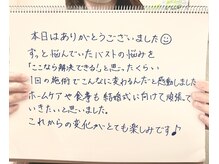 本日はありがとうございました☺
ずっと悩んでいたバストの悩みを
「ここなら解決できる!」と思ったくらい
1回の施術でこんなに変わるんだと感動しました
ホームケアや食事も結婚式に向けて頑張って
いきたいと思いました。
これからの変化がとても楽しみです♪